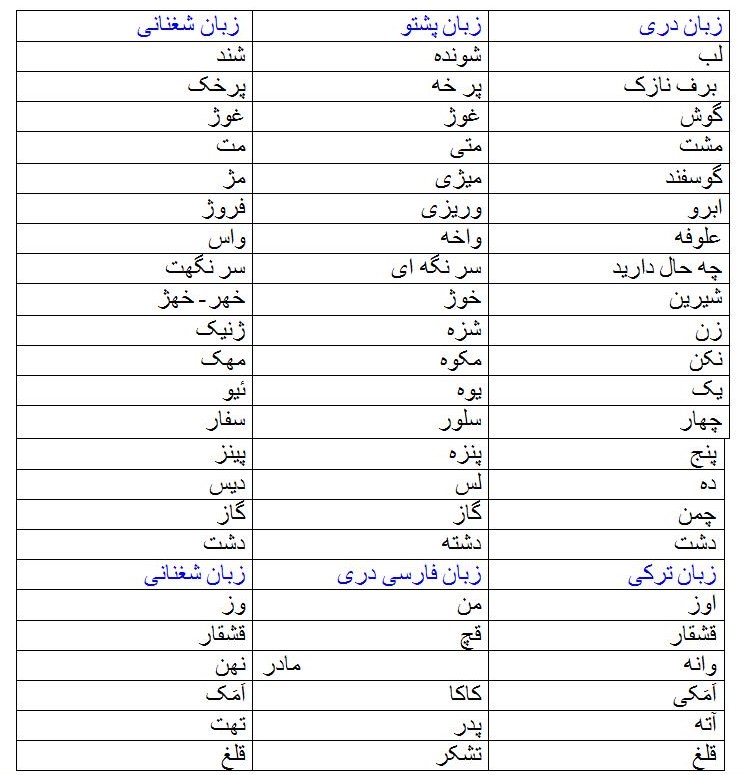 زبان دری زبان پشتو زبان شغنانی
لب شونده شند
برف نازک پر خه پرخک
گوش غوژ غوژ
مشت متی مت
گوسفند میژی مژ
ابرو وریزی فروژ
علوفه واخه واس
چه حال دارید سر نگه ای سر نگهت
شیرین خوژ خهر - خهژ
زن شزه ژنیک
نکن مکوه مهک
یک یوه ئیو
چهار سلور سفار
پنج پنزه پینز
ده لس دیس
چمن گاز گاز
دشت دشته دشت
زبان ترکی زبان فارسی دری زبان شغنانی
اوز من وز
قشقار قچ قشقار
وانه مادر نهن
اَمَکی کاکا اَمَک
آته پدر تهت
قلغ تشکر قلغ